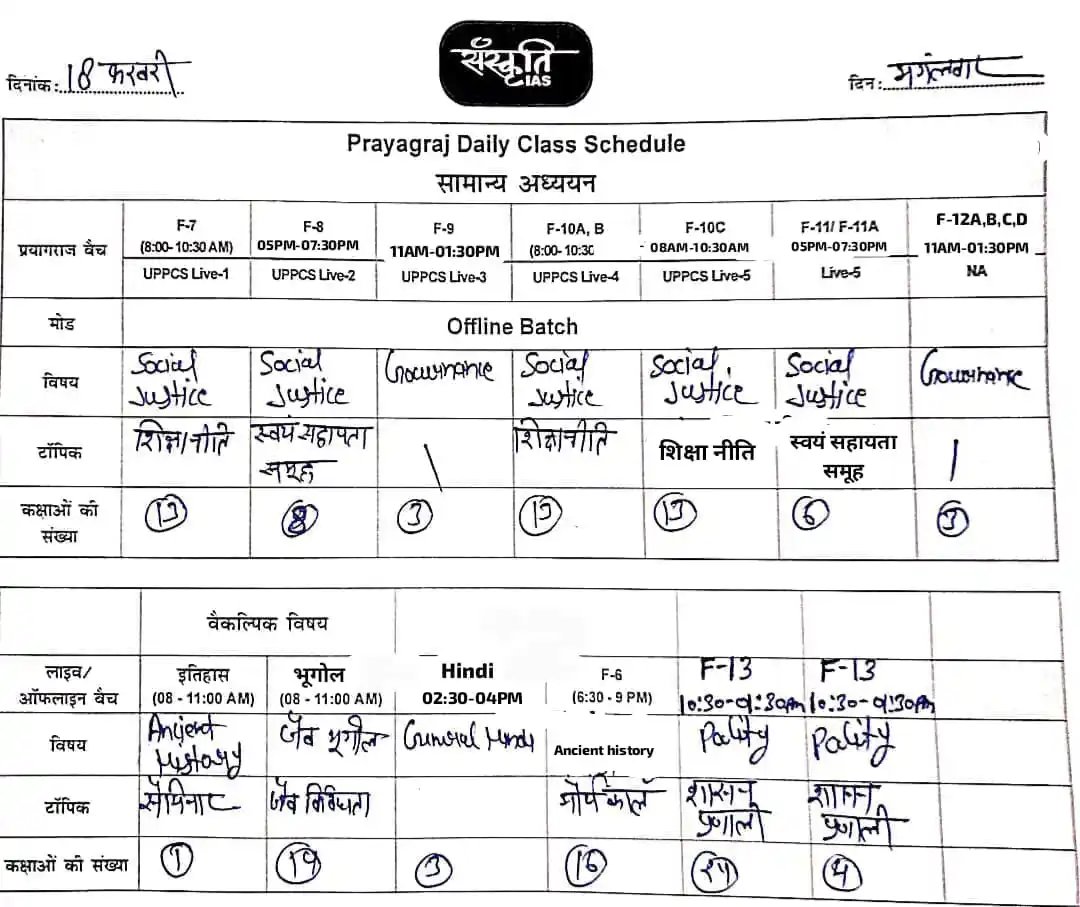 संस्कृति
IAS
दिनांक: 18 फरवरी
दिन: मगंलवार
Prayagraj Daily Class Schedule
सामान्य अध्ययन
प्रयागराज बैच
F-7
(8:00- 10:30 AM)
UPPCS Live-1
F-8
05PM-07:30PM
UPPCS Live-2
F-9
11AM-01:30PM
UPPCS Live-3
F-10A, B
(8:00- 10:30
UPPCS Live-4
F-10C
08AM-10:30AM
UPPCS Live-5
F-11/ F-11A
05PM-07:30PM
Live-5
F-12A,B,C,D
11AM-01:30PM
NA
मोड
Offline Batch
विषय
Social Justice
Social Justice
Governance
Social Justice
Social Justice
Social Justice
Governance
टॉपिक
शिक्षा नीति
स्वयं सहायता समूह
शिक्षा नीति
शिक्षा नीति
स्वयं सहायता समूह
कक्षाओं की संख्या
13
8
3
13
13
6
3
वैकल्पिक विषय
लाइव/ ऑफलाइन बैच
इतिहास
(08 - 11:00 AM)
भूगोल
(08 - 11:00 AM)
Hindi
02:30-04PM
F-6
(6:30 - 9 PM)
F-13
F-13
विषय
Ancient History
जैव भूगोल
General Hindi
Ancient history
Polity
Polity
टॉपिक
सेमिनार
जैव विविधता
मौर्य काल
शासन प्रणाली
शासन प्रणाली
कक्षाओं की संख्या
1
3
16
4